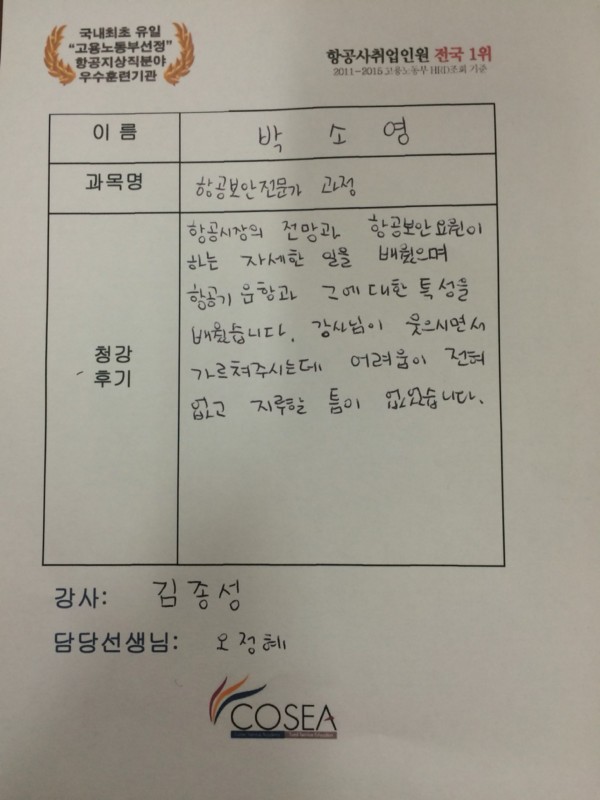 국내최초 유일
"고용노동부선정"
항공지상직분야
우수훈련기관
항공사취업인원 전국 1위
2011~2015 고용노동부 HRD조회 기준
이 름
박 소 영
과목명
항공보안전문가 과정
청강
후기
항공시장의 전망과 항공보안요원이
하는 자세한 일을 배웠으며
항공기 운항과 그에 대한 특성을
배웠습니다. 강사님이 웃으시면서
가르쳐주시는데 어려움이 전혀
없고 지루할 틈이 없었습니다.
강사: 김종성
담당선생님: 오정혜
COSEA